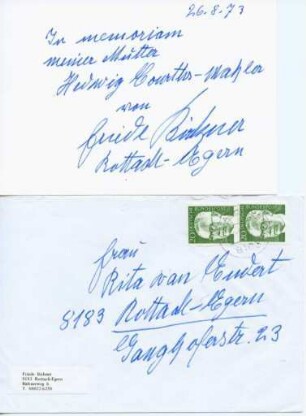 26-8-73
In memoriam
meiner Mutter
Hedwig Courths-Mahler
von
Friede Birkner
Rottach-Egern
Frau
Rita van Endert
8183 Rottach-Egern
Ganghoferstr. 23
Friede Birkner
8183 Rottach-Egern